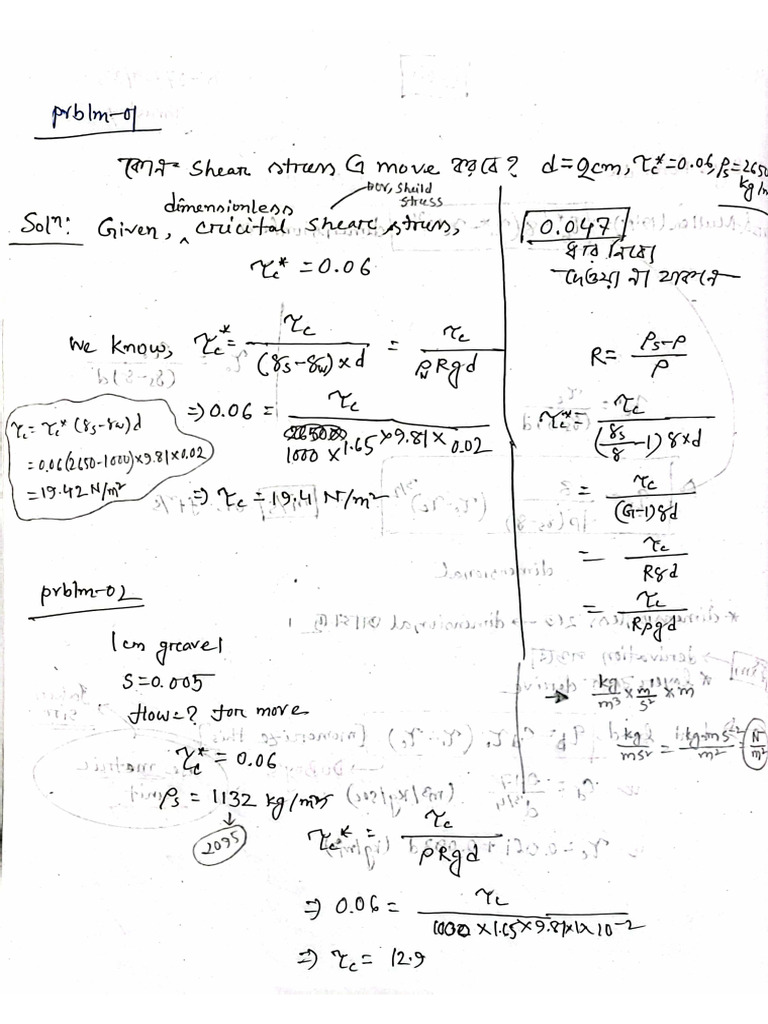 prblm-01
কোন Shear stress এ move করবে? d=2cm, τc*=0.06, ρs=2650 kg/m
dimensionless
Soln: Given, ^ cricital shear stress,
τc* = 0.06
We know, τc* = τc / (γs-γw)×d = τc / ρw Rgd
⇒ 0.06 = τc / 1000 × 1.65 × 9.81 × 0.02
⇒ τc = 19.4 N/m²
τc = τc* (γs-γw)d
= 0.06(2650-1000)×9.81×0.02
= 19.42 N/m²
0.047
ধরে নিবো
দেওয়া না থাকলে
R = ρs-ρ / ρ
τc* = τc / (γs/γ -1)γ×d
= τc / (G-1)γd
= τc / Rγd
= τc / Rρgd
→ kg/m³ × m/s² × m
kg/ms² = kg-ms⁻²/m² = N/m²
prblm-02
1cm gravel
S=0.005
flow=? for move
τc* = 0.06
ρs = 1132 kg/m
2095
τc* = τc / ρRgd
⇒ 0.06 = τc / 1000 ×1.65×9.81×1×10⁻²
⇒ τc = 12.9